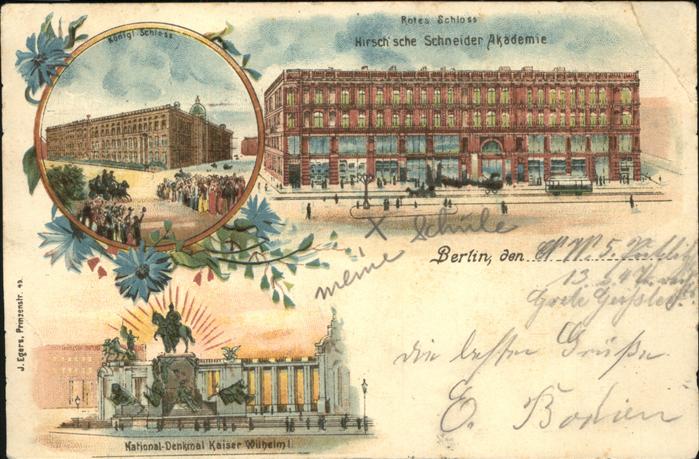 Königl. Schloss
Rotes Schloss
Hirsch'sche Schneider Akademie
X Schule
meine
Berlin, den
die besten Grüße
E. Bodien
J. Egers, Prinzenstr. 49.
National-Denkmal Kaiser Wilhelm I.